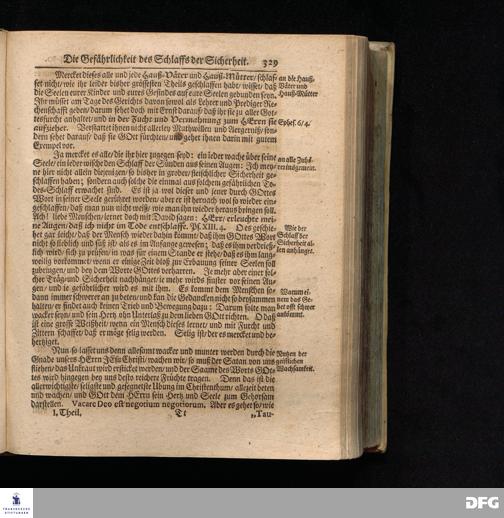 Die Gefährlichkeit des Schlaffs der Sicherheit. 329
Mercket dieses alle und jede Hauß-Väter und Hauß-Mütter/ schlaf-
fet nicht/ wie ihr leider bisher grössesten Theils geschlaffen habt/ wisset/ daß
die Seelen eurer Kinder und eures Gesindes auf eure Seelen gebunden seyn.
Ihr müsset am Tage des Gerichts davon sowol als Lehrer und Prediger Re-
chenschafft geben/ darum sehet doch mit Ernst darauf/ daß ihr sie zu aller Got-
tesfurcht anhaltet/ und in der Furcht und Vermahnung zum HErrn sie
aufziehet. Verstattet ihnen nicht allerley Muthwillen und Aergerniß/ son-
dern sehet darauf/ daß sie Gott fürchten/ und gehet ihnen darin mit gutem
Exempel vor.
an die Hauß-
Väter und
Hauß-Mütter
Ephes. 6/4.
Ja mercket es alle/ die ihr hier zugegen seyd: ein jeder wache über seine
Seele/ ein jeder wische den Schlaff der Sünden aus seinen Augen: Ich mey-
ne hier nicht allein diejenigen/ so bisher in grober fleischlicher Sicherheit ge-
schlaffen haben; sondern auch solche die einmal aus solchen gefährlichen To-
des-Schlaf erwachet sind. Es ist ja wol dieser und jener durch GOttes
Wort in seiner Seele gerühret worden/ aber er ist hernach wol so wieder ein-
geschlaffen/ daß man nun nicht weiß/ wie man ihn wieder heraus bringen soll.
Ach! liebe Menschen/ lernet doch mit David sagen: HErr/ erleuchte mei-
ne Augen/ daß ich nicht im Tode entschlaffe. Ps. XIII. 4. O es geschie-
het gar leicht/ daß der Mensch wieder dahin kommt/ daß ihm GOttes Wort
nicht so lieblich und süß ist/ als es im Anfange gewesen; daß es ihm verdrieß-
lich wird/ sich zu prüfen/ in was für einem Stande er stehe/ daß es ihm lang-
weilig vorkommt/ wenn er einige Zeit bloß zur Erbauung seiner Seelen soll
zubringen/ und bey dem Worte GOttes verharren. Je mehr aber einer sol-
cher Träg- und Sicherheit nachhänget/ je mehr wirds finster vor seinen Au-
gen/ und je gefährlicher wird es mit ihm. Es kommt dem Menschen so-
dann immer schwerer an zu beten/ und kan die Gedancken nicht so beysammen
halten/ er findet auch keinen Trieb und Bewegung dazu: Darum solte man
wacker seyn/ und sein Hertz ohn Unterlaß zu dem lieben GOtt richten. O daß
ist eine grosse Weißheit/ wenn ein Mensch dieses lernet/ und mit Furcht und
Zittern schaffet/ daß er möge selig werden. Selig ist/ der es mercket und be-
hertziget.
an alle Zuhö-
rer insgemein.
Wie der
Schlaff der
Sicherheit al-
len anhänget.
Nun so lasset uns denn allesamt wacker und munter werden durch die
Gnade unsers HErrn JEsu Christi/ wachen wir/ so muß der Satan von uns
fliehen/ das Unkraut wird ersticket werden/ und der Saame des Worts GOt-
tes wird hingegen bey uns desto reichere Früchte tragen. Denn das ist die
allerwichtigste/ seligste und gesegneteste Ubung im Christenthum/ allezeit beten
und wachen/ und GOtt dem HErrn sein Hertz und Seele zum Gehorsam
darstellen. Vacare Deo est negotium negotiorum. Aber es gehet so/ wie
Nutzen der
geistlichen
Wachsamkeit.
I. Theil. Tt „Tau-
FRANCKESCHE
STIFTUNGEN
DFG